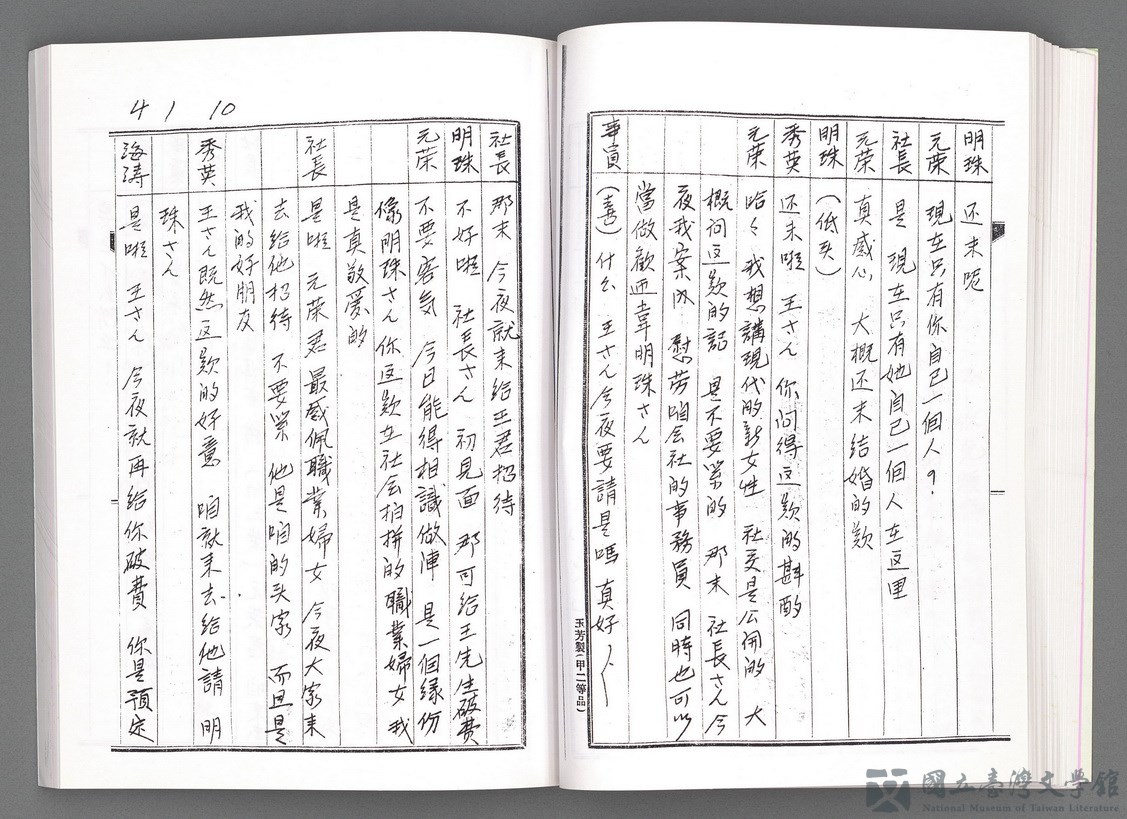 明珠 还未呢
元荣 現在只有你自己一個人？
社長 是 現在只有她自己一個人在这里
元荣 真感心 大概还未結婚的款
明珠 （低头）
秀英 还未啦 王さん 你问得这款的斟酌
元荣 哈々 我想講現代的新女性 社交是公開的 大
概问这款的話 是不要緊的 那末 社長さん今
夜我案内 慰劳咱会社的事務員 同時也可以
當做歡迎韋明珠さん
事員 （喜）什么 王さん今夜要請是嗎 真好〳〵
玉芳製（甲二等品）
4 1 10
社長 那末 今夜就来給王君招待
明珠 不好啦 社長さん 初見面 那可給王先生破費
元荣 不要客気 今日能得相識做陣 是一個縁份
像明珠さん你这款在社会拍拼的職業婦女 我
是真敬爱的
社長 是啦 元荣君最感佩職業婦女 今夜大家来
去給他招待 不要緊 他是咱的头家 而且是
我的好朋友
秀英 王さん既然这款的好意 咱就来去給他請 明
珠さん
海涛 是啦 王さん 今夜就再給你破費 你是預定
國立臺灣文學館
National Museum of Taiwan Literature